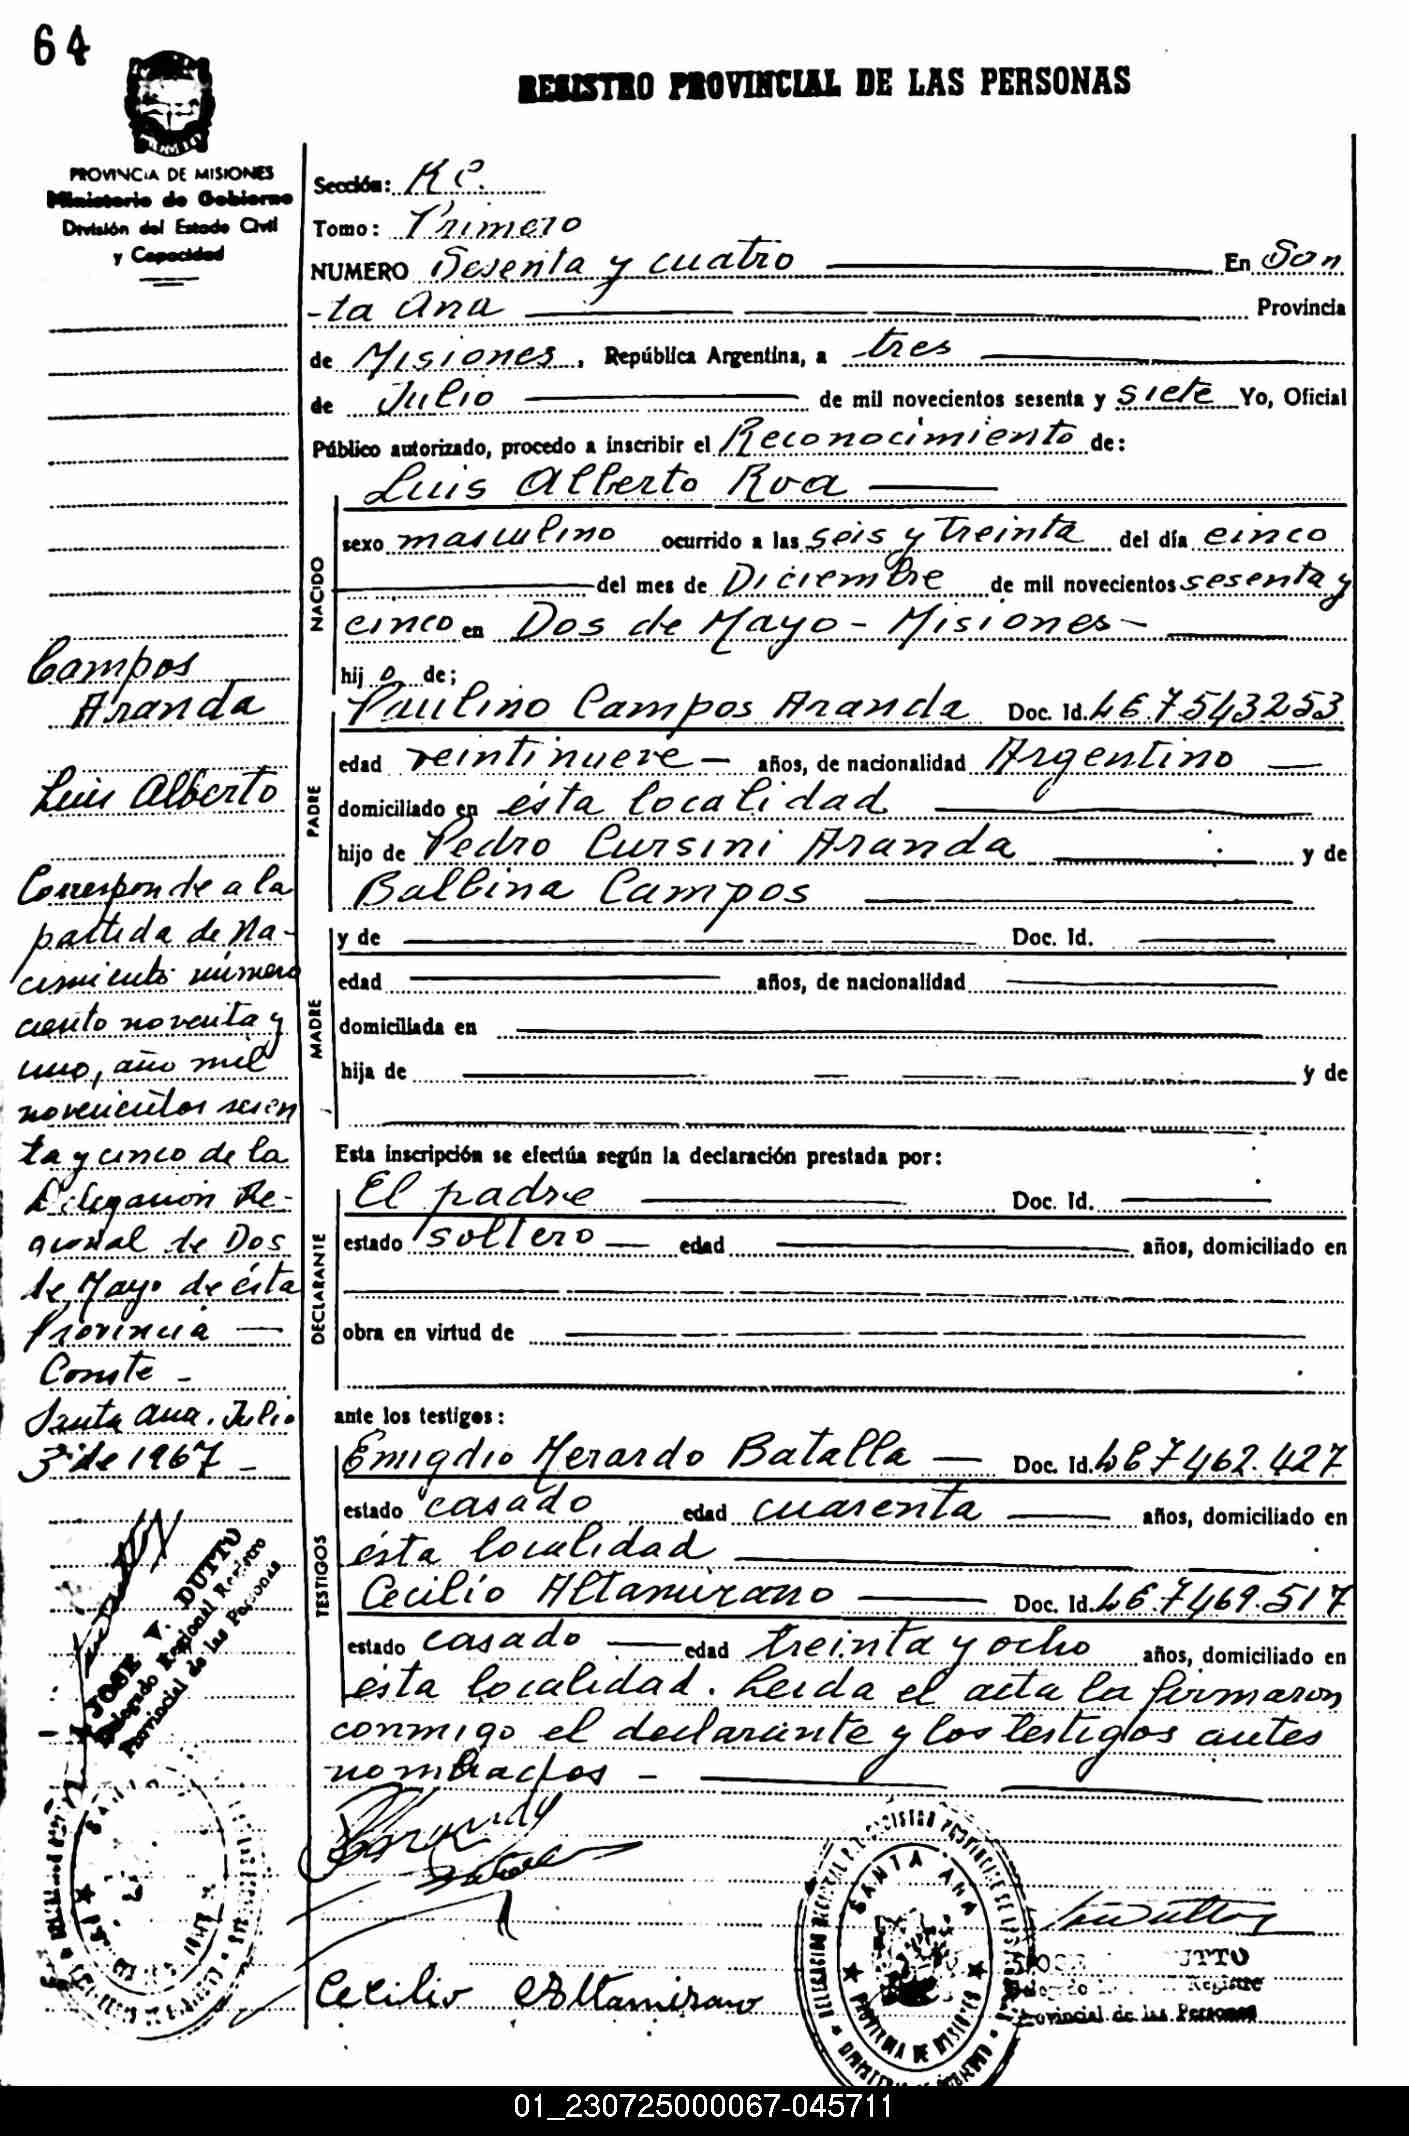 64
REGISTRO PROVINCIAL DE LAS PERSONAS
PROVINCIA DE MISIONES
Ministerio de Gobierno
División del Estado Civil
y Capacidad
Sección: R C.
Tomo: Primero
NUMERO Sesenta y cuatro En San
-ta Ana Provincia
de Misiones, República Argentina, a tres
de Julio de mil novecientos sesenta y siete Yo, Oficial
Público autorizado, procedo a inscribir el Reconocimiento de:
Luis Alberto Roa
NACIDO
sexo masculino ocurrido a las seis y treinta del día cinco
del mes de Diciembre de mil novecientos sesenta y
cinco en Dos de Mayo - Misiones -
hijo de;
PADRE
Paulino Campos Aranda Doc. Id. L E 7543253
edad veintinueve - años, de nacionalidad Argentino
domiciliado en ésta localidad
hijo de Pedro Cursini Aranda y de
Balbina Campos
MADRE
y de Doc. Id.
edad años, de nacionalidad
domiciliada en
hija de y de
Esta inscripción se efectúa según la declaración prestada por:
DECLARANTE
El padre Doc. Id.
estado soltero edad años, domiciliado en
obra en virtud de
ante los testigos:
TESTIGOS
Emigdio Herardo Batalla Doc. Id. L E 7462.427
estado casado edad cuarenta años, domiciliado en
ésta localidad
Cecilio Altamirano Doc. Id. L E 7469.517
estado casado edad treinta y ocho años, domiciliado en
ésta localidad. Leida el acta la firmaron
conmigo el declarante y los testigos antes
nombrados -
Campos
Aranda
Luis Alberto
Corresponde a la
partida de Na-
cimiento número
ciento noventa y
uno, año mil
novecientos sesen
ta y cinco de la
Delegación Re-
gional de Dos
de Mayo de ésta
Provincia
Conste -
Santa Ana, Julio
3 de 1967 -
JOSE V. DUTTO
Delegado Regional Registro
Provincial de las Personas
Cecilio Altamirano
SANTA ANA
PROVINCIA DE MISIONES
JOSE DUTTO
Delegado Registro
Provincial de las Personas
01_230725000067-045711